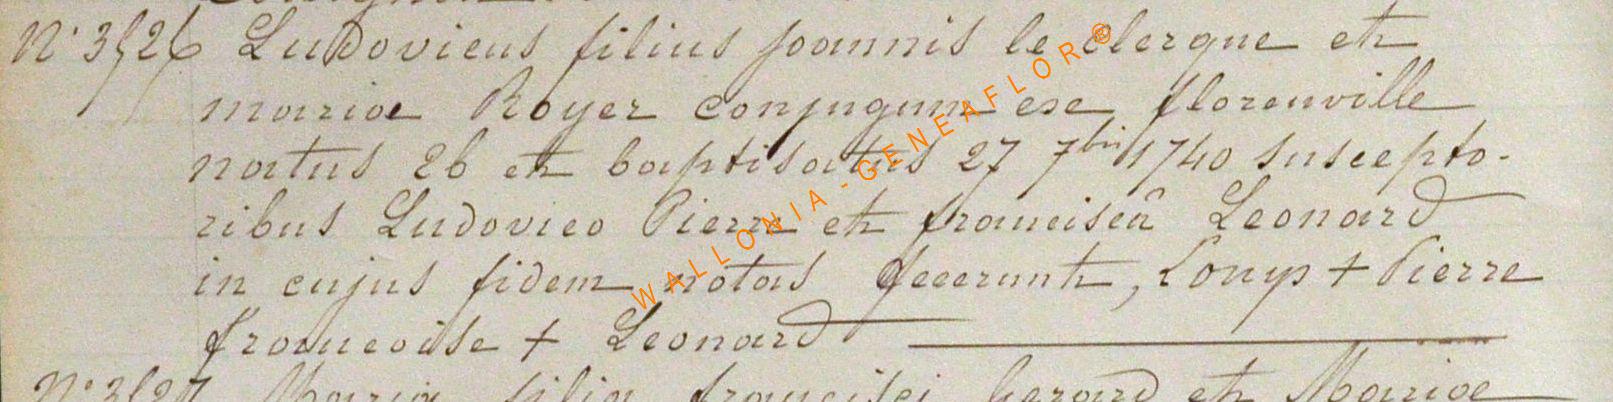 N° 3526 Ludovicus filius joannis le clerque et
mariae Royer conjugum ex florenville
natus 26 et baptisatus 27 7bris 1740 suscepto-
ribus Ludovico Pierre et franciscâ Leonard
in cujus fidem notas fecerunt, Louys + Pierre
francoise + Leonard
N° 3527 Maria filia francisci Gerard et Mariae
WALLONIA-GENEAFLOR®